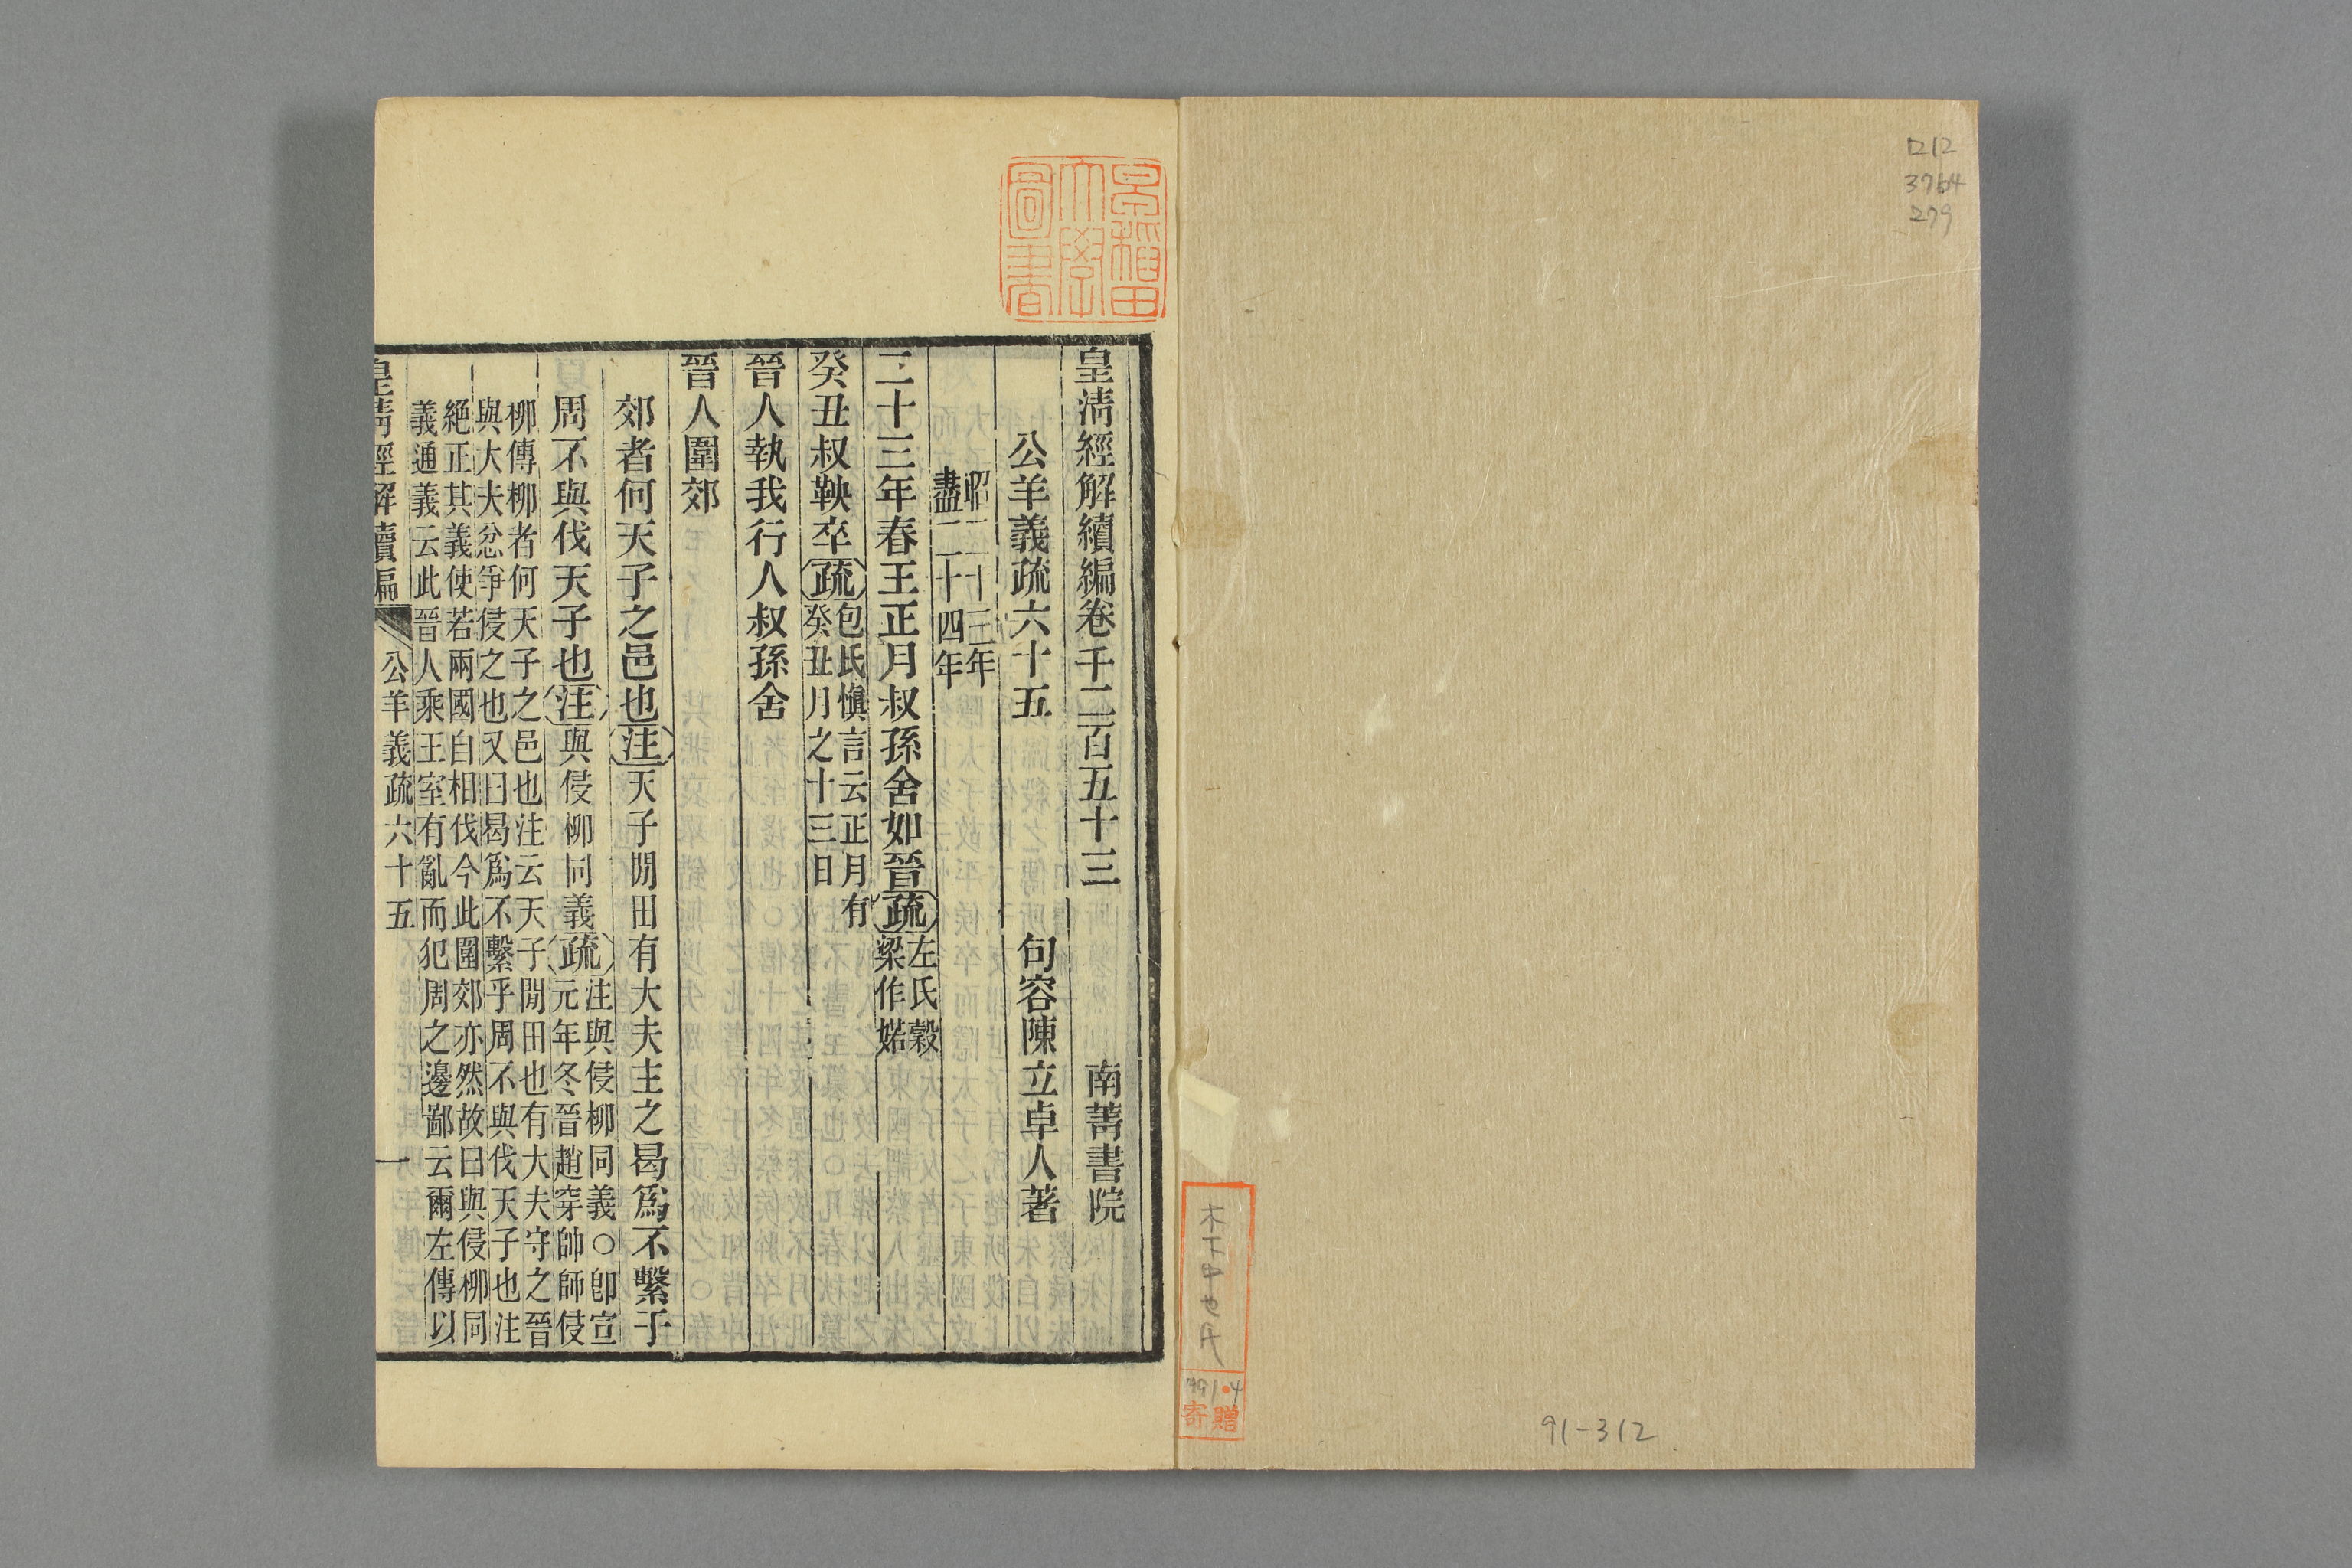 皇清經解續編卷千二百五十三 南菁書院
公羊義疏六十五 句容陳立卓人著
昭二十三年
盡二十四年
二十三年春王正月叔孫舍如晉疏左氏穀
梁作婼
癸丑叔鞅卒疏包氏愼言云正月有
癸丑月之十三日
晉人執我行人叔孫舍
晉人圍郊
郊者何天子之邑也注天子閒田有大夫主之曷爲不繫于
周不與伐天子也注與侵柳同義疏注與侵柳同義○卽宣
元年冬晉趙穿帥師侵
柳傳柳者何天子之邑也注云天子閒田也有大夫守之晉
與大夫忿爭侵之也又曰曷爲不繫乎周不與伐天子也注
絕正其義使若兩國自相伐今此圍郊亦然故曰與侵柳同
義通義云此晉人乘王室有亂而犯周之邊鄙云爾左傳以
皇清經解續編 公羊義疏六十五 一
早稻田
大學
圖書
212
3764
279
木下
氏
491.4
寄贈
91-312